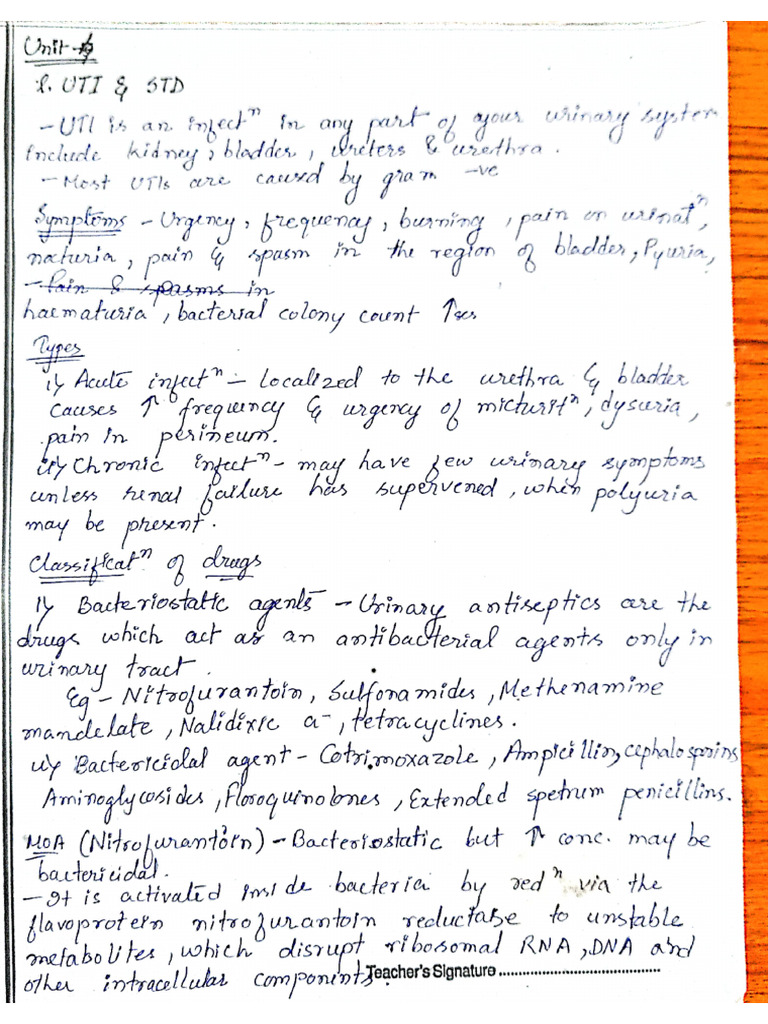 Unit -
1. UTI & STD
- UTI is an infectⁿ in any part of your urinary system
include kidney, bladder, ureters & urethra.
- Most UTIs are caused by gram -ve
Symptoms - Urgency, frequency, burning, pain on urinatⁿ,
nocturia, pain & spasm in the region of bladder, Pyuria,
- Pain & spasms in
haematuria, bacterial colony count ↑ses
Types
i) Acute infectⁿ - localized to the urethra & bladder
causes ↑ frequency & urgency of micturitⁿ, dysuria,
pain in perineum.
ii) Chronic infectⁿ - may have few urinary symptoms
unless renal failure has supervened, when polyuria
may be present.
Classificatⁿ of drugs
i) Bacteriostatic agents - Urinary antiseptics are the
drugs which act as an antibacterial agents only in
urinary tract.
Eg - Nitrofurantoin, Sulfonamides, Methenamine
mandelate, Nalidixic a-, tetracyclines.
ii) Bactericidal agent - Cotrimoxazole, Ampicillin, cephalosprins
Aminoglycosides, Floroquinolones, Extended spetrum penicillins.
MOA (Nitrofurantoin) - Bacteriostatic but ↑ conc. may be
bactericidal.
- It is activated inside bacteria by redⁿ via the
flavoprotein nitrofurantoin reductase to unstable
metabolites, which disrupt ribosomal RNA, DNA and
other intracellular components.
Teacher's Signature